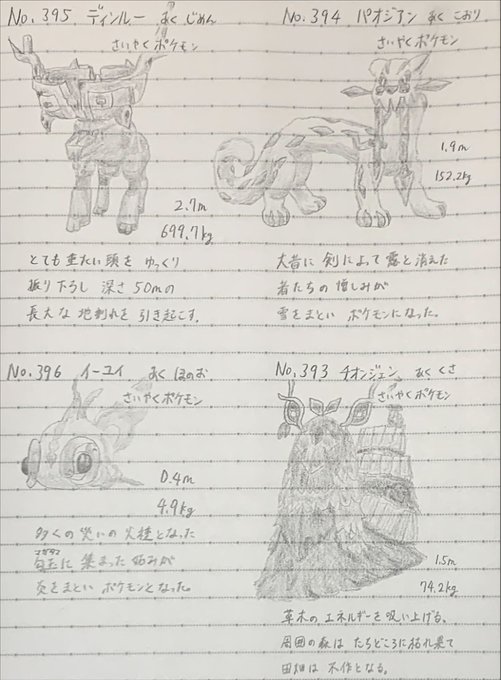 No.395 ディンルー あく じめん
さいやくポケモン
2.7m
699.7kg
とても重たい頭を ゆっくり
振り下ろし 深さ50mの
長大な 地割れを 引き起こす.
No.394 パオジアン あく こおり
さいやくポケモン
1.9m
152.2kg
大昔に 剣によって 露と消えた
者たちの 憎しみが
雪をまとい ポケモンになった。
No.396 イーユイ あく ほのお
さいやくポケモン
0.4m
4.9kg
多くの 災いの 火種となった
勾玉に 集まった 妬みが
まがたま
炎をまとい ポケモンとなった。
No.393 チオンジェン あく くさ
さいやくポケモン
1.5m
74.2kg
草木の エネルギーを 吸い上げる、
周囲の森は たちどころに 枯れ果て
田畑は 不作となる。